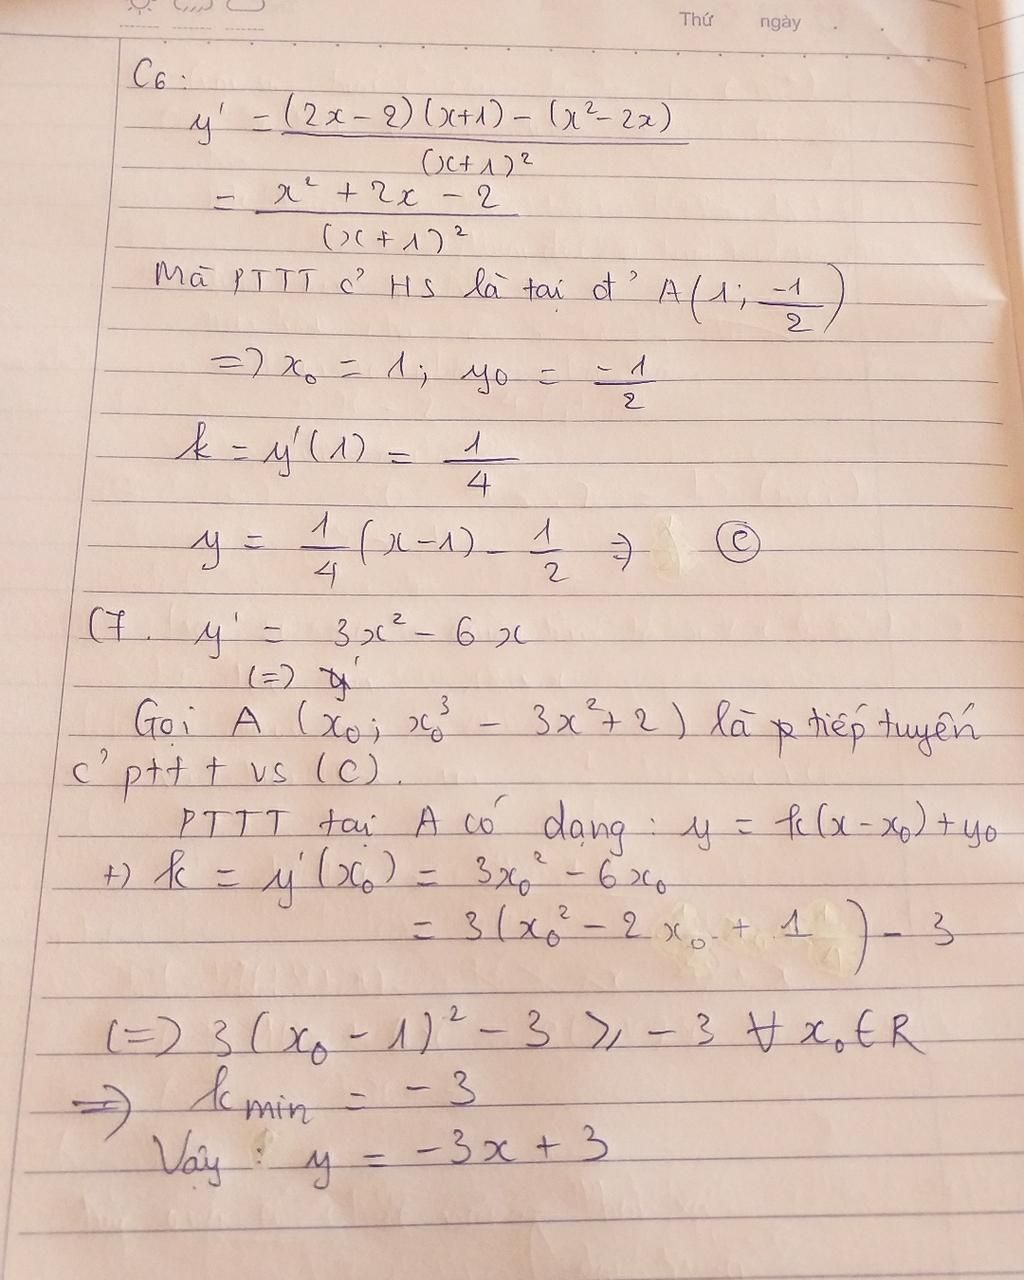 Thứ ngày
C6:
y' = (2x - 2)(x+1) - (x² - 2x) / (x+1)²
= x² + 2x - 2 / (x+1)²
Mà PTTT c' HS là tại đ' A(1; -1/2)
=> x₀ = 1; y₀ = -1/2
k = y'(1) = 1/4
y = 1/4 (x-1) - 1/2 => C
C7. y' = 3x² - 6x
(=) y'
Gọi A (x₀; x₀³ - 3x² + 2) là tiếp tuyến
c' pttt vs (C).
PTTT tại A có dạng: y = k(x-x₀) + y₀
+) k = y'(x₀) = 3x₀² - 6x₀
= 3(x₀² - 2x₀ + 1) - 3
(=) 3(x₀ - 1)² - 3 ⩾ -3 ∀ x₀ ∈ R
=> k min = -3
Vậy: y = -3x + 3